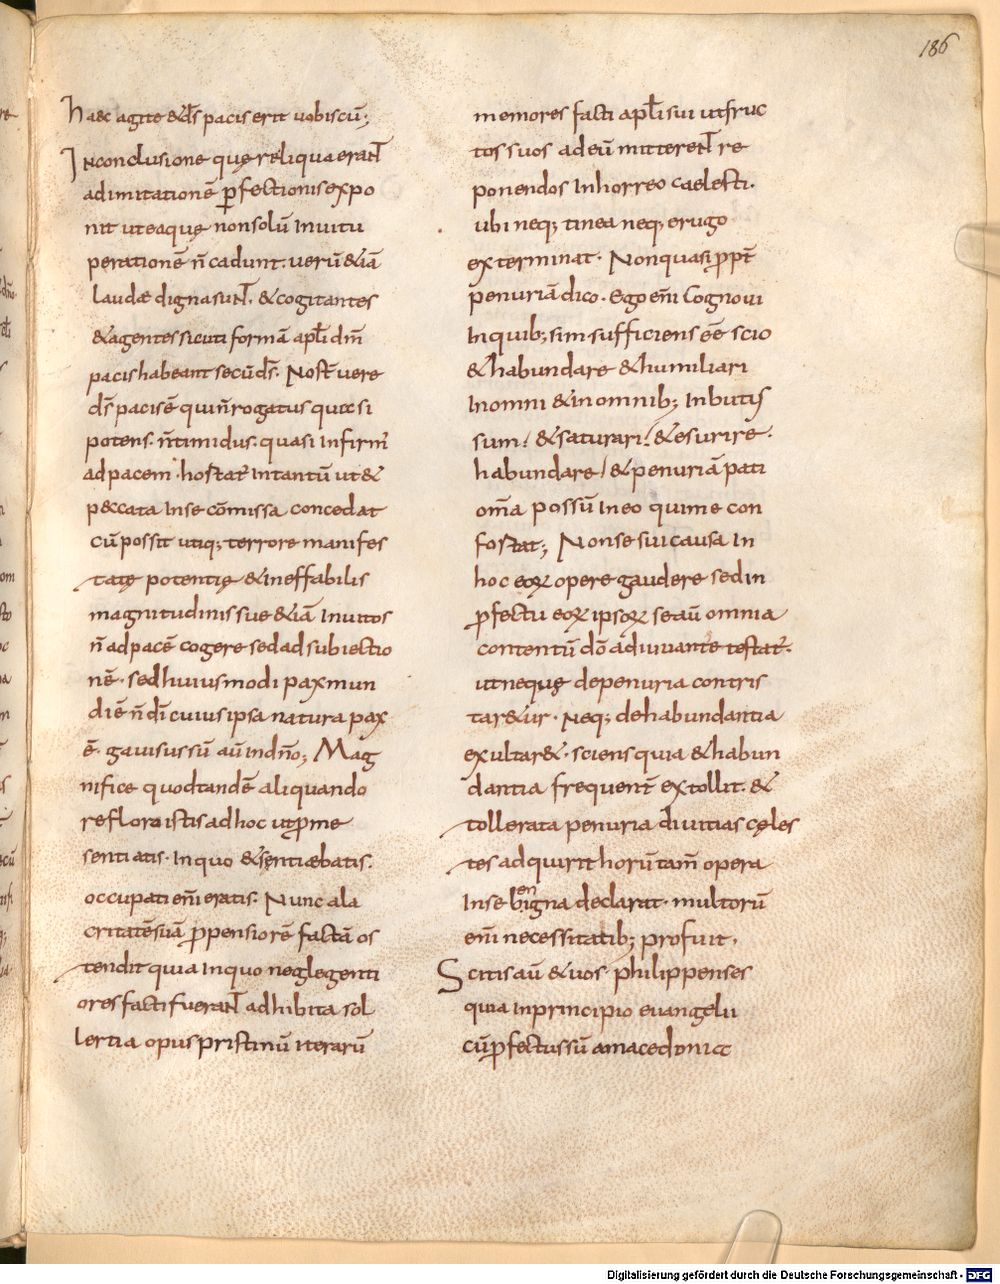 186
haec agite &d̄s pacis erit uobiscū;
Inconclusione quę reliqua eraNT
adimitationē ꝑfectionis expo
nit ut eaquę nonsolū Inuitu
perationē n̄ cadunt. uerū &iā
laudæ digna suNT. &cogitantes
&agentes sicuti formā apl̄i dm̄
pacis habeant secū d̄s. Nost̄ uere
d̄s pacis ē quin̄ rogatus quasi
potens. n̄ timidus. quasi Infirm'
adpacem. hostat' Intantū ut &
peccata Inse cōmissa concedat
cū possit utiq; terrore manifes
tatę potentię &ineffabilis
magnitudinis sue &iā Inuitos
n̄ adpacē cogere sed adsubiectio
nē. sed huiusmodi pax mun
di ē n̄ dī cuius ipsa natura pax
ē. gauisus sū aū indn̄o; Mag
nifice quodtandē aliquando
refloruistis adhoc ut ꝓ me
sentiatis. Inquo &sentiæbatis.
occupati enī eratis. Nunc ala
critatē suā ꝓpensiorē factā os
tendit quia Inquo neglegenti
ores facti fueraNT adhibita sol
lertia opus pristinū iterarū
memores facti apl̄i sui ut fruc
tos suos adeū mittereNT re
ponendos Inhorreo caelesti.
ubi neq; tinea neq; erugo
exterminat. Nonquasi ꝓpt̄
penuriā dico. Ego enī Cognoui
Inquib; sim sufficiens eē scio
&habundare &humiliari
Inomni &in omnib; Inbutus
sum! &saturari! &esurire.
habundare! &penuriā pati
om̄a possū Ineo qui me con
fortat; Nonse sui causa In
hoc eoꝝ opere gaudere sed in
ꝓfectu eoꝝ ipsoꝝ se aū omnia
contentū dō adiuuante testat'.
ut neque de penuria contris
tar&ur. Neq; dehabundantia
exultar&. sciens quia &habun
dantia frequent̄ extollit. &
tollerata penuria diuitias cęles
tes adquirit horū tam̄ opera
Inse benigna declarat. multorū
enī necessitatib; profuit.
Scitis aū &uos philippenses
quia Inprincipio euangelii
cū ꝓfectus sū amacedonia
Digitalisierung gefördert durch die Deutsche Forschungsgemeinschaft - DFG